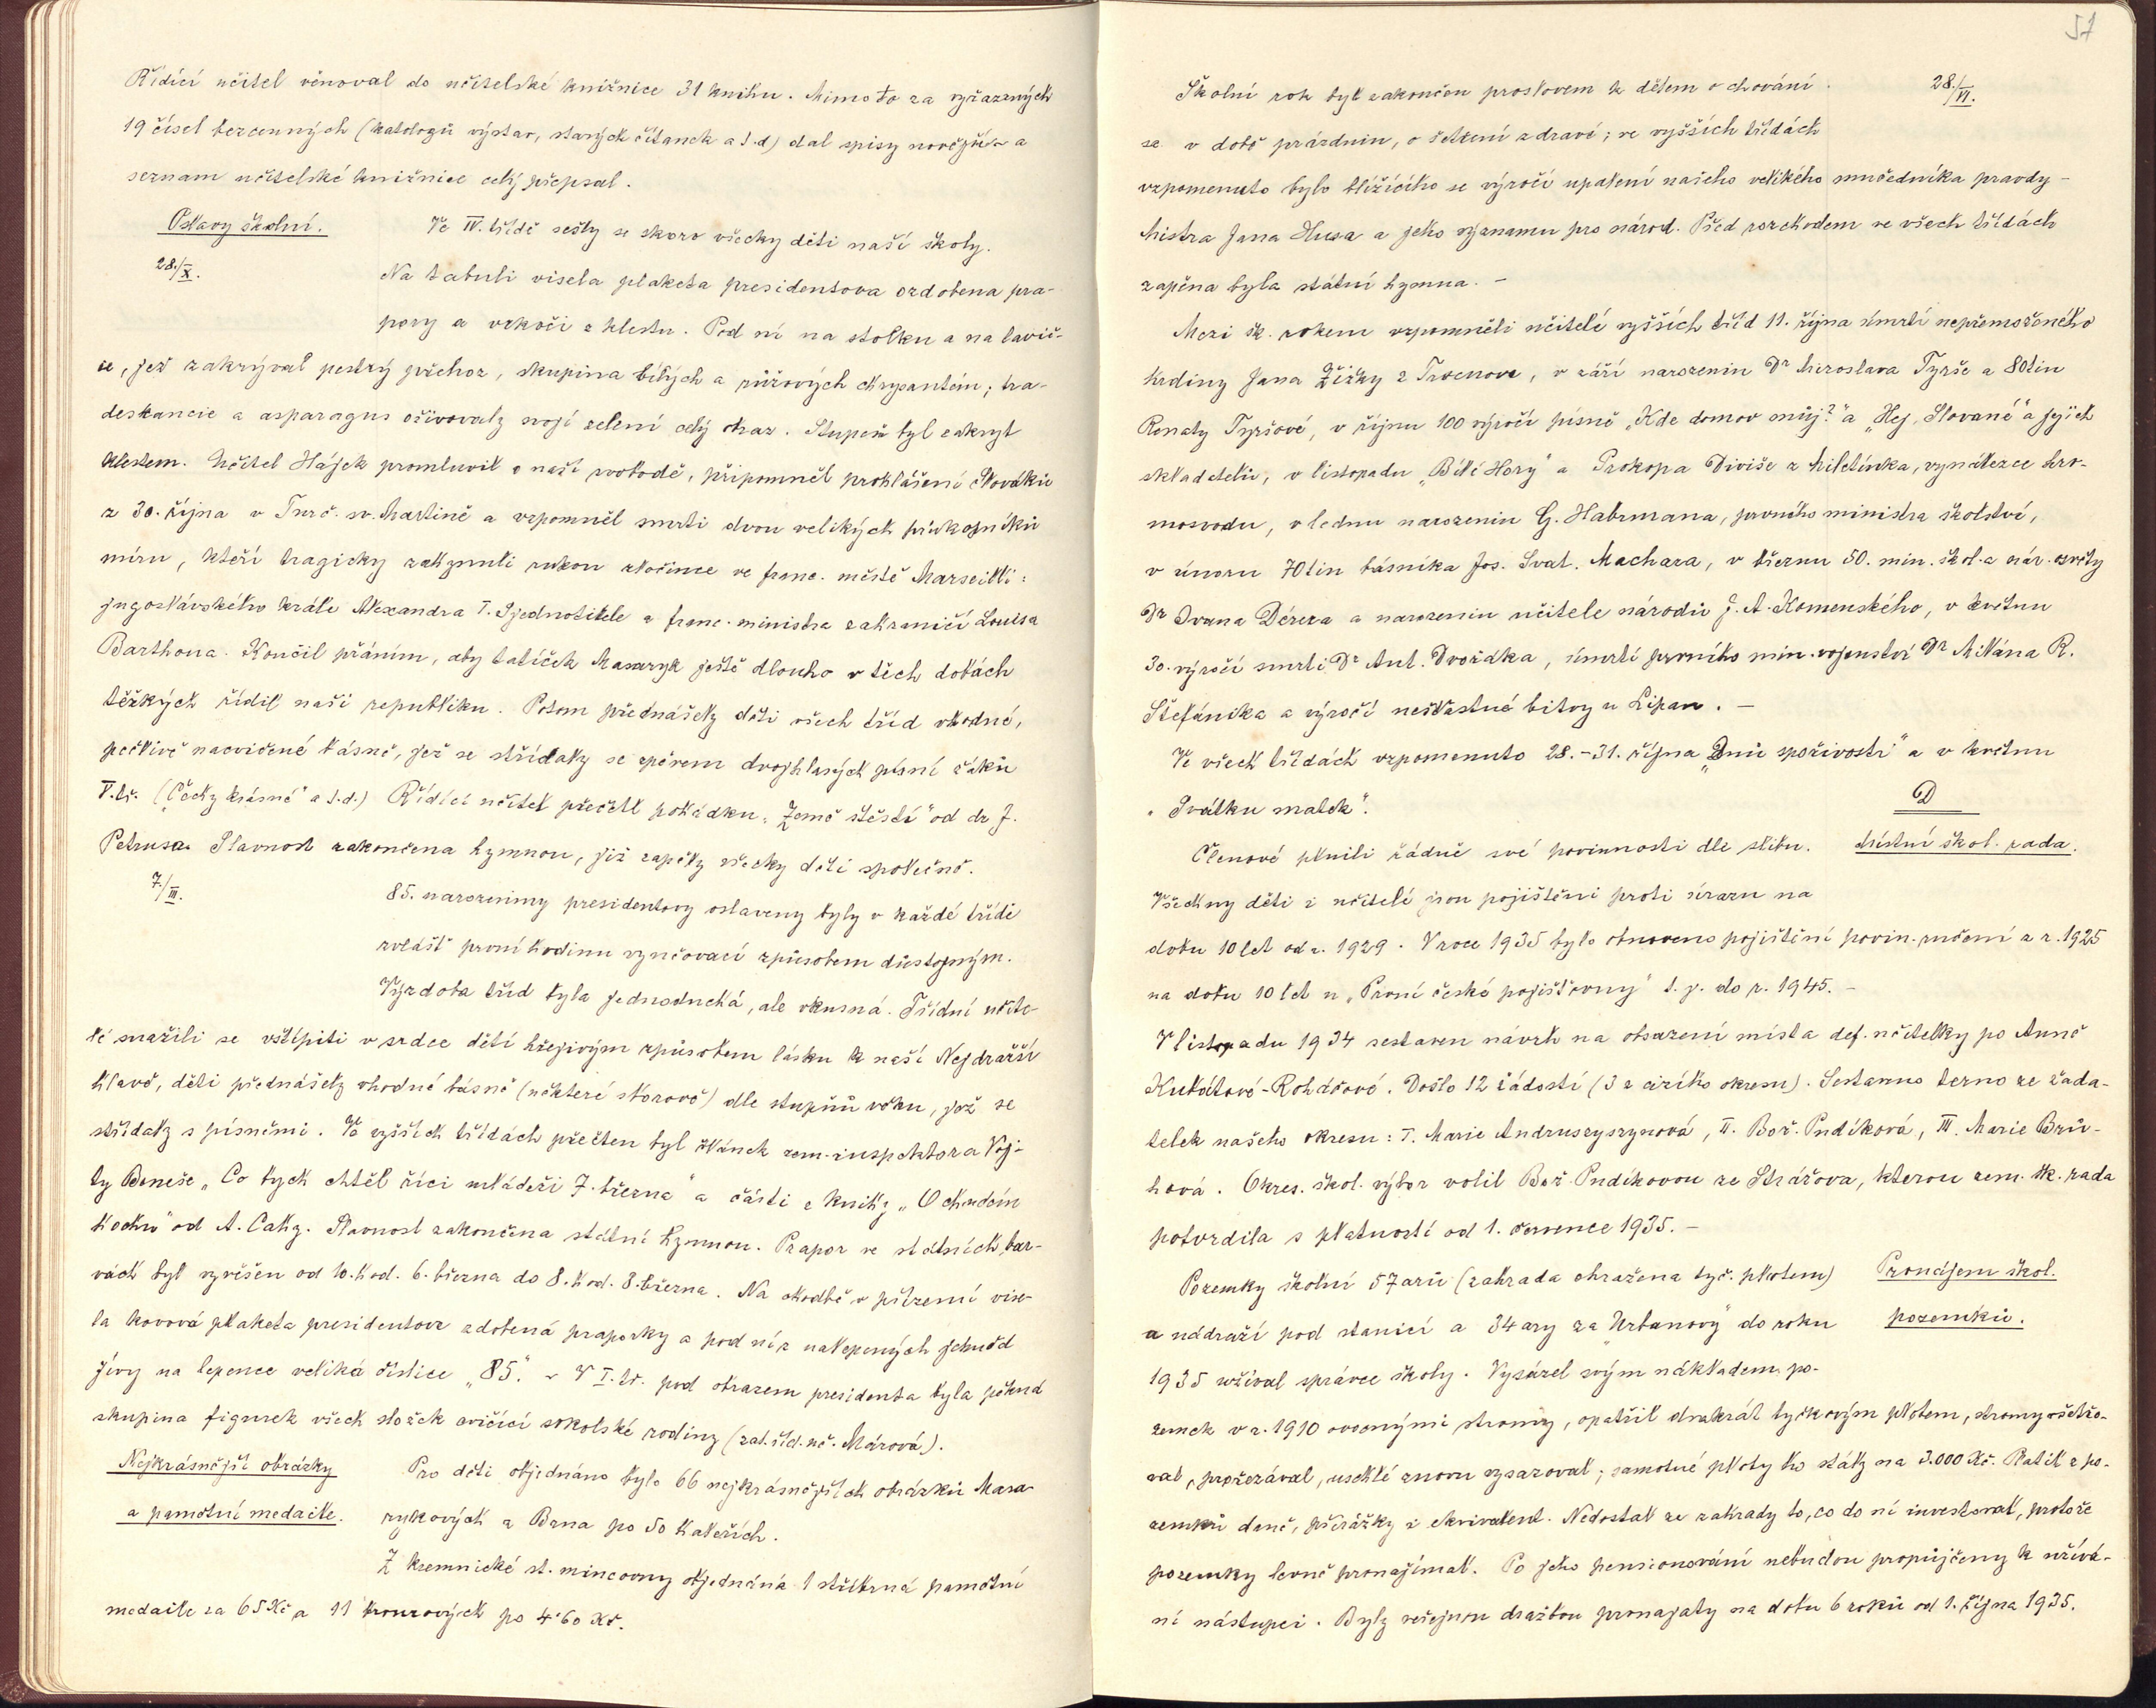 Řídící učitel věnoval do učitelské knižnice 31 knihu. Mimo to za vyřazených
19 čísel bezcenných (katologů výstav, starých čítanek a t.d) dal spisy novější a
seznam učitelské knižnice celý přepsal.
Oslavy školní.
28./X.
Ve IV. třídě sešly se skoro všecky děti naší školy.
Na tabuli visela plaketa presidentova ozdobena pra-
pory a vrkoči z klestu. Pod ní na stolku a na lavič-
ce, jež zakrýval pestrý přehoz, skupina bílých a růžových chrysantém; tra-
deskancie a asparagus oživovaly svojí zelení celý obraz. Stupeň byl zakryt
klestem. Učitel Hájek promluvil o naší svobodě, připomněl prohlášení Slováků
z 30. října v Turč. sv. Martině a vzpomněl smrti dvou velikých průkopníků
míru, kteří tragicky zahynuli rukou zločince ve franc. městě Marseilli:
jugoslávského krále Alexandra I. Sjednotitele a franc. ministra zahraničí Louisa
Barthoua. Končil přáním, aby tatíček Masaryk ještě dlouho v těch dobách
těžkých řídil naši republiku. Potom přednášely děti všech tříd vhodné,
pečlivě nacvičené básně, jež se střídaly se zpěvem dvojhlasých písní žáků
V. tř. („Čechy krásné" a t.d.) Řídící učitel přečetl pohádku „Země štěstí" od dr J.
Petrusa. Slavnost zakončena hymnou, již zapěly všecky děti společně.
7./III.
85. narozeniny presidentovy oslaveny byly v každé třídě
zvlášť první hodinu vyučovací způsobem důstojným.
Výzdoba tříd byla jednoduchá, ale vkusná. Třídní učite-
lé snažili se vštípiti v srdce dětí hřejivým způsobem lásku k naší Nejdražší
hlavě, děti přednášely vhodné básně (některé sborově) dle stupňů věku, jež se
střídaly s písněmi. Ve vyšších třídách přečten byl článek zem. inspektora Voj-
ty Beneše „Co bych chtěl říci mládeži 7. března" a části z knihy „O chudém
hochu" od A. Cahy. Slavnost zakončena státní hymnou. Prapor ve státních bar-
vách byl vyvěšen od 10. hod. 6. března do 8. hod. 8. března. Na chodbě v přízemí vise-
la kovová plaketa presidentova zdobená praporky a pod ní z nalepených jehněd
jívy na lepence veliká číslice „85". - V I. tř. pod obrazem presidenta byla pěkná
skupina figurek všech složek cvičící sokolské rodiny (zat. tříd. uč. Márová).
Nejkrásnější obrázky
a pamětní medaile.
Pro děti objednáno bylo 66 nejkrásnějších obrázků Masa-
rykových z Brna po 50 haléřích.
Z kremnické st. mincovny objednána 1 stříbrná pamětní
medaile za 65 Kč a 11 bronzových po 4·60 Kč.
51
28./VI.
Školní rok byl zakončen proslovem k dětem o chování
se v době prázdnin, o šetření zdraví; ve vyšších třídách
vzpomenuto bylo blížícího se výročí upálení našeho velikého mučedníka pravdy -
Mistra Jana Husa a jeho významu pro národ. Před rozchodem ve všech třídách
zapěna byla státní hymna. -
Mezi šk. rokem vzpomněli učitelé vyšších tříd 11. října úmrtí nepřemoženého
hrdiny Jana Žižky z Trocnova, v září narozenin Dr Miroslava Tyrše a 80tin
Renaty Tyršové, v říjnu 100 výročí písně „Kde domov můj?" a „Hej, Slované" a jejich
skladatelů, v listopadu „Bílé Hory" a Prokopa Diviše z Miletínka, vynálezce hro-
mosvodu, v lednu narozenin G. Habrmana, prvního ministra školství,
v únoru 70tin básníka Jos. Svat. Machara, v březnu 50. min. škol. a nár. osvěty
Dr Ivana Dérera a narozenin učitele národů J. A. Komenského, v květnu
30. výročí smrti Dr Ant. Dvořáka, úmrtí prvního min. vojenství Dr Milána R.
Štefánika a výročí nešťastné bitvy u Lipan. -
Ve všech třídách vzpomenuto 28.-31. října „Dnů spořivosti" a v květnu
„Svátku matek".
D
Místní škol. rada.
Členové plnili řádně své povinnosti dle slibu.
Všechny děti i učitelé jsou pojištěni proti úrazu na
dobu 10 let od r. 1929. V roce 1935 bylo obnoveno pojištění povin. ručení z r. 1925
na dobu 10 let u „První české pojišťovny" t. j. do r. 1945. -
V listopadu 1934 sestaven návrh na obsazení místa def. učitelky po Anně
Kubátové-Roháčové. Došlo 12 žádostí (3 z cizího okresu). Sestaveno terno ze žada-
telek našeho okresu: I. Marie Andruszyszynová, II. Bož. Pudíková, III. Marie Brů-
hová. Okres. škol. výbor volil Bož. Pudíkovou ze Strážova, kterou zem. šk. rada
potvrdila s platností od 1. července 1935. -
Pronájem škol.
pozemků.
Pozemky školní 57 arů (zahrada ohražena tyč. plotem)
u nádraží pod stanicí a 34 ary za „Urbanovy" do roku
1935 užíval správce školy. Vysázel svým nákladem po-
zemek v r. 1910 ovocnými stromy, opatřil dvakrát tyčkovým plotem, stromy ošetřo-
val, prořezával, uschlé znovu vysazoval; samotné ploty ho stály na 3.000 Kč. Platil z po-
zemků daně, přirážky i ekvivalent. Nedostal ze zahrady to, co do ní investoval, protože
pozemky levně pronajímal. Po jeho pensionování nebudou propůjčeny k užívá-
ní nástupci. Byly veřejnou dražbou pronajaty na dobu 6 roků od 1. října 1935.